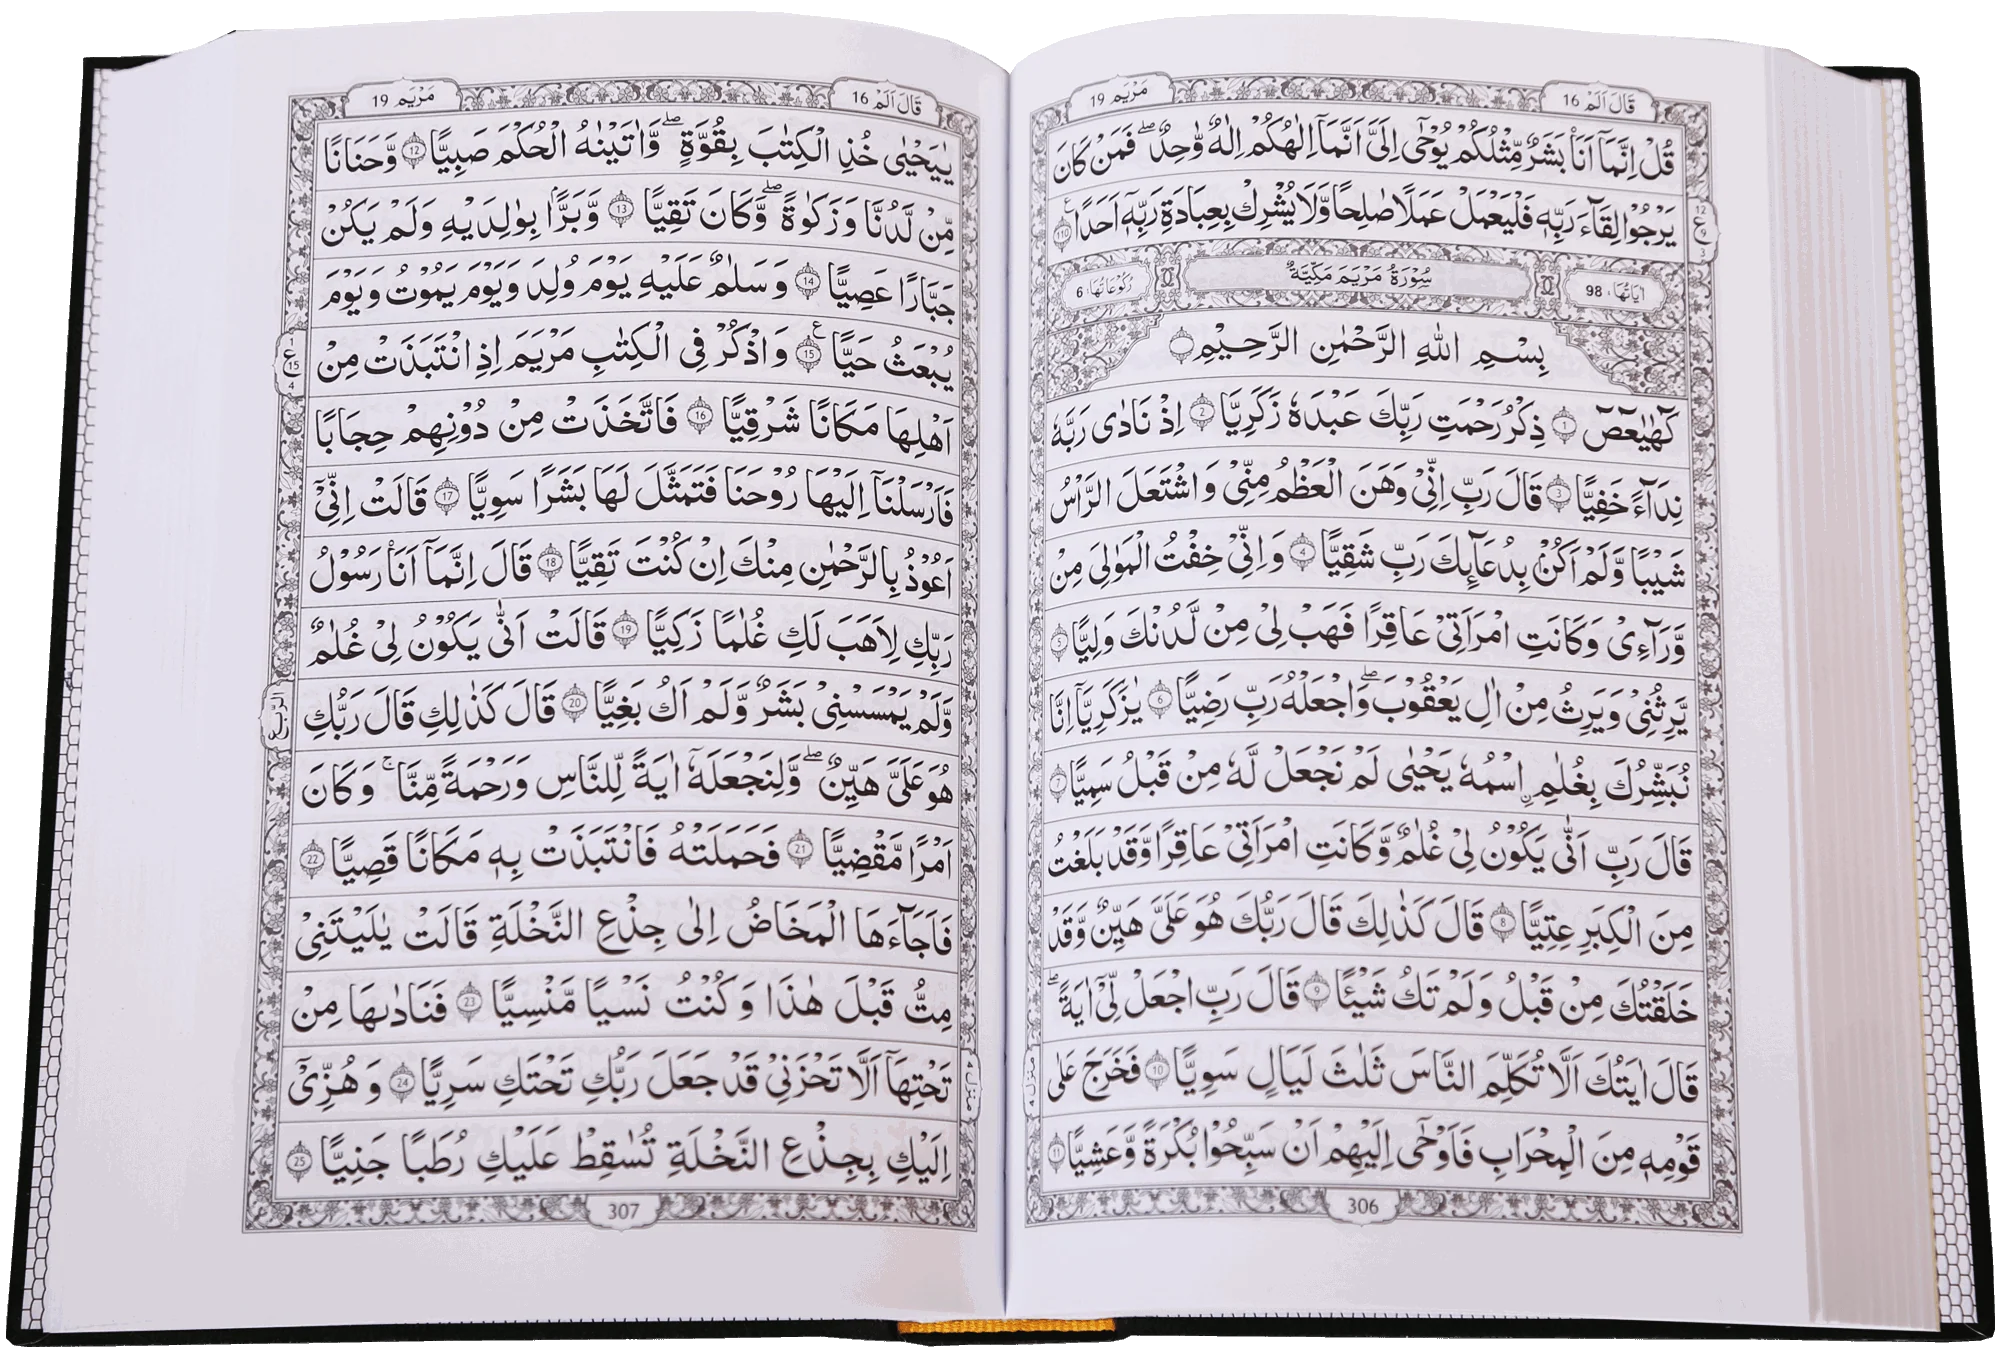 قَالَ اَلَمْ 16
مَرْيَم 19
قُلْ اِنَّمَاۤ اَنَا۠ بَشَرٌ مِّثْلُكُمْ يُوْحٰۤى اِلَىَّ اَنَّمَاۤ اِلٰهُكُمْ اِلٰهٌ وَّاحِدٌ ۖ فَمَنْ كَانَ
يَرْجُوْا لِقَآءَ رَبِّهٖ فَلْيَعْمَلْ عَمَلًا صٰلِحًا وَّلَا يُشْرِكْ بِعِبَادَةِ رَبِّهٖۤ اَحَدًا ۝110
12 ع 9 3
اٰيَاتُهَا: 98 سُوْرَةُ مَرْيَمَ مَكِّيَّةٌ رُكُوْعَاتُهَا: 6
بِسْمِ اللّٰهِ الرَّحْمٰنِ الرَّحِيْمِ
كٓهٰيٰعٓصٓ ۝1 ذِكْرُ رَحْمَتِ رَبِّكَ عَبْدَهٗ زَكَرِيَّا ۝2 اِذْ نَادٰى رَبَّهٗ
نِدَآءً خَفِيًّا ۝3 قَالَ رَبِّ اِنِّىْ وَهَنَ الْعَظْمُ مِنِّىْ وَاشْتَعَلَ الرَّاْسُ
شَيْبًا وَّلَمْ اَكُنْۢ بِدُعَآئِكَ رَبِّ شَقِيًّا ۝4 وَاِنِّىْ خِفْتُ الْمَوَالِىَ مِنْ
وَّرَآءِىْ وَكَانَتِ امْرَاَتِىْ عَاقِرًا فَهَبْ لِىْ مِنْ لَّدُنْكَ وَلِيًّا ۝5
يَّرِثُنِىْ وَيَرِثُ مِنْ اٰلِ يَعْقُوْبَ ۖ وَاجْعَلْهُ رَبِّ رَضِيًّا ۝6 يٰزَكَرِيَّاۤ اِنَّا
نُبَشِّرُكَ بِغُلٰمِ ۨاسْمُهٗ يَحْيٰى لَمْ نَجْعَلْ لَّهٗ مِنْ قَبْلُ سَمِيًّا ۝7
قَالَ رَبِّ اَنّٰى يَكُوْنُ لِىْ غُلٰمٌ وَّكَانَتِ امْرَاَتِىْ عَاقِرًا وَّقَدْ بَلَغْتُ
مِنَ الْكِبَرِ عِتِيًّا ۝8 قَالَ كَذٰلِكَ قَالَ رَبُّكَ هُوَ عَلَىَّ هَيِّنٌ وَّقَدْ
خَلَقْتُكَ مِنْ قَبْلُ وَلَمْ تَكُ شَيْـًٔا ۝9 قَالَ رَبِّ اجْعَلْ لِّىْۤ اٰيَةً ۖ
قَالَ اٰيَتُكَ اَلَّا تُكَلِّمَ النَّاسَ ثَلٰثَ لَيَالٍ سَوِيًّا ۝10 فَخَرَجَ عَلٰى
قَوْمِهٖ مِنَ الْمِحْرَابِ فَاَوْحٰۤى اِلَيْهِمْ اَنْ سَبِّحُوْا بُكْرَةً وَّعَشِيًّا ۝11
منزل ٤
306
قَالَ اَلَمْ 16
مَرْيَم 19
يٰيَحْيٰى خُذِ الْكِتٰبَ بِقُوَّةٍ ۖ وَّاٰتَيْنٰهُ الْحُكْمَ صَبِيًّا ۝12 وَّحَنَانًا
مِّنْ لَّدُنَّا وَزَكٰوةً ۖ وَّكَانَ تَقِيًّا ۝13 وَّبَرًّۢا بِوٰلِدَيْهِ وَلَمْ يَكُنْ
جَبَّارًا عَصِيًّا ۝14 وَسَلٰمٌ عَلَيْهِ يَوْمَ وُلِدَ وَيَوْمَ يَمُوْتُ وَيَوْمَ
يُبْعَثُ حَيًّا ۝15 وَاذْكُرْ فِى الْكِتٰبِ مَرْيَمَ اِذِ انْتَبَذَتْ مِنْ
1 ع 15 4
اَهْلِهَا مَكَانًا شَرْقِيًّا ۝16 فَاتَّخَذَتْ مِنْ دُوْنِهِمْ حِجَابًا
فَاَرْسَلْنَاۤ اِلَيْهَا رُوْحَنَا فَتَمَثَّلَ لَهَا بَشَرًا سَوِيًّا ۝17 قَالَتْ اِنِّىْۤ
اَعُوْذُ بِالرَّحْمٰنِ مِنْكَ اِنْ كُنْتَ تَقِيًّا ۝18 قَالَ اِنَّمَاۤ اَنَا۠ رَسُوْلُ
رَبِّكِ لِاَهَبَ لَكِ غُلٰمًا زَكِيًّا ۝19 قَالَتْ اَنّٰى يَكُوْنُ لِىْ غُلٰمٌ
وَّلَمْ يَمْسَسْنِىْ بَشَرٌ وَّلَمْ اَكُ بَغِيًّا ۝20 قَالَ كَذٰلِكِ قَالَ رَبُّكِ
الرُّبُع
هُوَ عَلَىَّ هَيِّنٌ ۖ وَلِنَجْعَلَهٗۤ اٰيَةً لِّلنَّاسِ وَرَحْمَةً مِّنَّا ۚ وَكَانَ
اَمْرًا مَّقْضِيًّا ۝21 فَحَمَلَتْهُ فَانْتَبَذَتْ بِهٖ مَكَانًا قَصِيًّا ۝22
فَاَجَآءَهَا الْمَخَاضُ اِلٰى جِذْعِ النَّخْلَةِ قَالَتْ يٰلَيْتَنِىْ
مِتُّ قَبْلَ هٰذَا وَكُنْتُ نَسْيًا مَّنْسِيًّا ۝23 فَنَادٰىهَا مِنْ
تَحْتِهَاۤ اَلَّا تَحْزَنِىْ قَدْ جَعَلَ رَبُّكِ تَحْتَكِ سَرِيًّا ۝24 وَهُزِّىْۤ
اِلَيْكِ بِجِذْعِ النَّخْلَةِ تُسٰقِطْ عَلَيْكِ رُطَبًا جَنِيًّا ۝25
منزل ٤
307